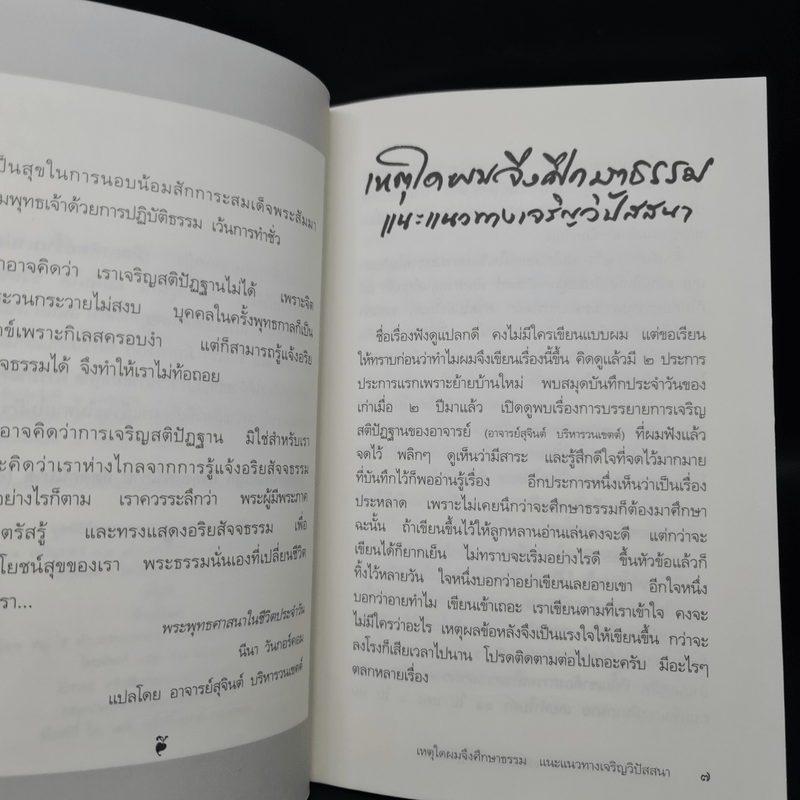 ป็นสุขในการนอบน้อมสักการะสมเด็จพระสัมมา
มพุทธเจ้าด้วยการปฏิบัติธรรม เว้นการทำชั่ว
าอาจคิดว่า เราเจริญสติปัฏฐานไม่ได้ เพราะจิต
ระวนกระวายไม่สงบ บุคคลในครั้งพุทธกาลก็เป็น
ข์เพราะกิเลสครอบงำ แต่ก็สามารถรู้แจ้งอริย
จธรรมได้ จึงทำให้เราไม่ท้อถอย
อาจคิดว่าการเจริญสติปัฏฐาน มิใช่สำหรับเรา
ะคิดว่าเราห่างไกลจากการรู้แจ้งอริยสัจจธรรม
อย่างไรก็ตาม เราควรระลึกว่า พระผู้มีพระภาค
ตรัสรู้ และทรงแสดงอริยสัจจธรรม เพื่อ
โยชน์สุขของเรา พระธรรมนั่นเองที่เปลี่ยนชีวิต
รา...
พระพุทธศาสนาในชีวิตประจำวัน
นีนา วันกอร์คอม
แปลโดย อาจารย์สุจินต์ บริหารวนเขตต์
เหตุใดผมจึงศึกษาธรรม
แนะแนวทางเจริญวิปัสสนา
ชื่อเรื่องฟังดูแปลกดี คงไม่มีใครเขียนแบบผม แต่ขอเรียน
ให้ทราบก่อนว่าทำไมผมจึงเขียนเรื่องนี้ขึ้น คิดดูแล้วมี ๒ ประการ
ประการแรกเพราะย้ายบ้านใหม่ พบสมุดบันทึกประจำวันของ
เก่าเมื่อ ๒ ปีมาแล้ว เปิดดูพบเรื่องการบรรยายการเจริญ
สติปัฏฐานของอาจารย์ (อาจารย์สุจินต์ บริหารวนเขตต์) ที่ผมฟังแล้ว
จดไว้ พลิกๆ ดูเห็นว่ามีสาระ และรู้สึกดีใจที่จดไว้มากมาย
ที่บันทึกไว้ก็พออ่านรู้เรื่อง อีกประการหนึ่งเห็นว่าเป็นเรื่อง
ประหลาด เพราะไม่เคยนึกว่าจะศึกษาธรรมก็ต้องมาศึกษา
ฉะนั้น ถ้าเขียนขึ้นไว้ให้ลูกหลานอ่านเล่นคงจะดี แต่กว่าจะ
เขียนได้ก็ยากเย็น ไม่ทราบจะเริ่มอย่างไรดี ขึ้นหัวข้อแล้วก็
ทิ้งไว้หลายวัน ใจหนึ่งบอกว่าอย่าเขียนเลยอายเขา อีกใจหนึ่ง
บอกว่าอายทำไม เขียนเข้าเถอะ เราเขียนตามที่เราเข้าใจ คงจะ
ไม่มีใครว่าอะไร เหตุผลข้อหลังจึงเป็นแรงใจให้เขียนขึ้น กว่าจะ
ลงโรงก็เสียเวลาไปนาน โปรดติดตามต่อไปเถอะครับ มีอะไรๆ
ตลกหลายเรื่อง
เหตุใดผมจึงศึกษาธรรม แนะแนวทางเจริญวิปัสสนา ๗